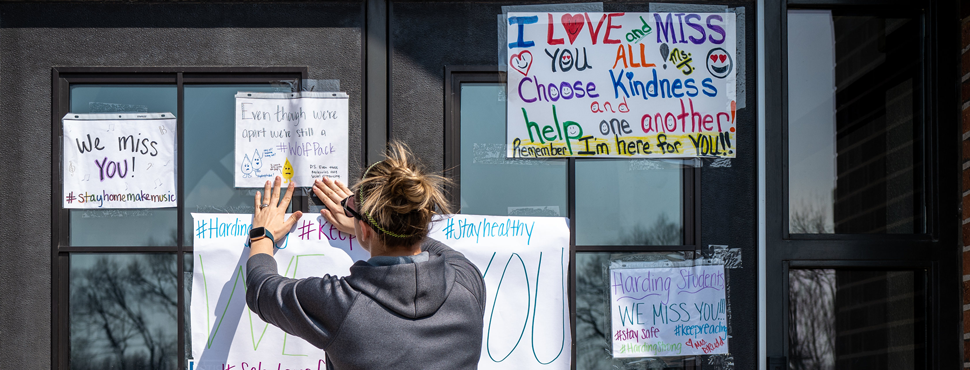 We miss
YOU!
#Stayhomemakemusic
Even though were
apart were still a
#WolfPack
I LOVE and MISS
YOU ALL! Ms. J
Choose Kindness
and
help one another!
Remember I'm here for YOU!!
#Harding
#Keep
#Stayhealthy
WE
YOU
Harding Students
WE MISS YOU!!!
#stay safe #keepreaching
#HardingStrong